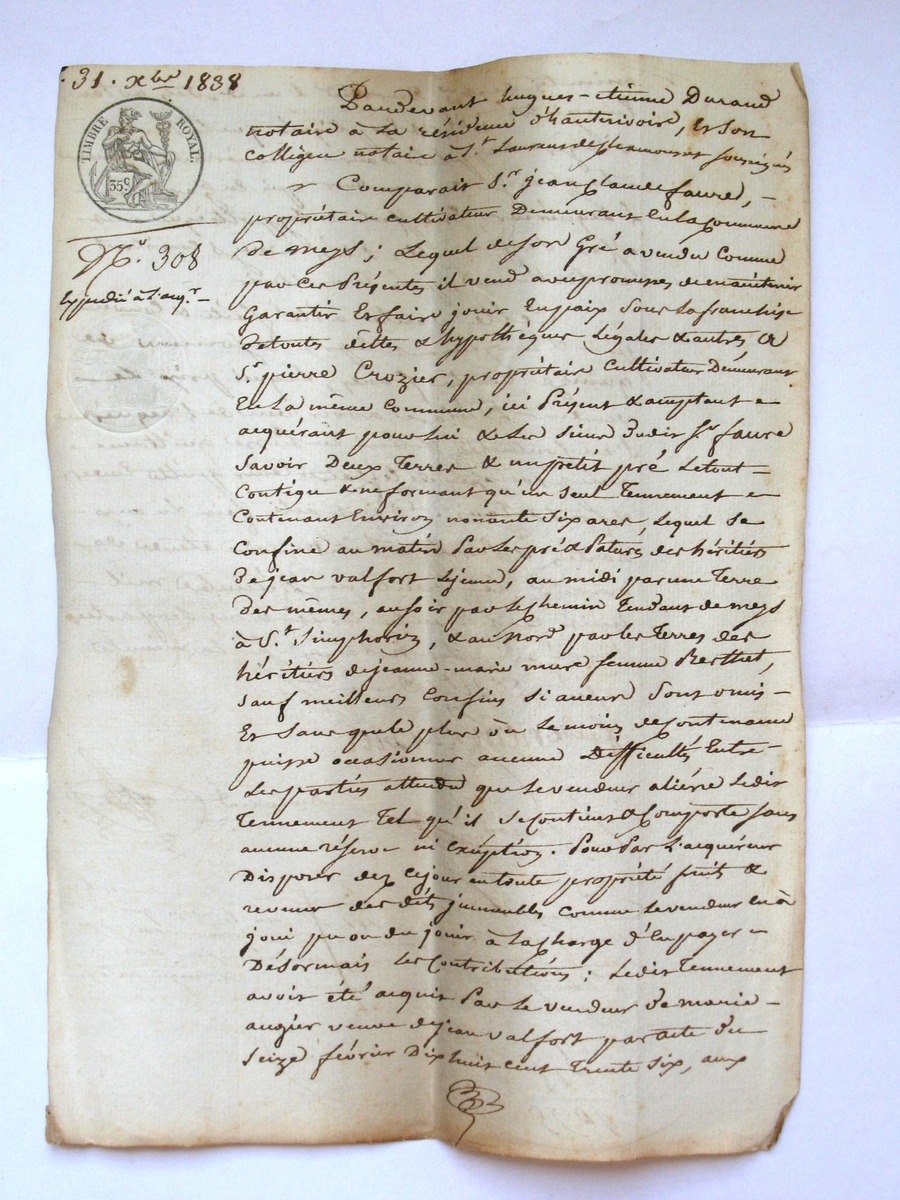 31. xbre 1838
TIMBRE ROYAL.
35c
No. 308
Expédié à l'aqr.
Pardevant hugues-etienne Durand
notaire à la résidence d'hauterivoire, et son
collègue notaire à St Laurent de Chamousset soussignés
Comparait Sr. jean Claude faure,
propriétaire cultivateur Demeurant en la commune
de meys; Lequel de son Gré a vendu Comme
par ces Présentes il vend avec promesses de maintenir
Garantir et faire jouir en paix sous la franchise
de toutes dettes & hypothèques légales & autres, a
Sr. pierre Crozier, propriétaire cultivateur Demeurant
En la même Commune, ici Présent & acceptant
acquérant pour lui & les siens dudit Sr faure
Savoir Deux Terres & un petit pré Le tout
Contigu & ne formant qu'un seul Tennement
Contenant Environ nonante six ares, Lequel se
Confine au matin Par les pré & Pature des héritiers
De jean valfort Lejeune, au midi par une Terre
Des mêmes, au soir par le chemin Tendant de meys
à St. Simphorien, & au Nord par les Terres des
héritiers de jeanne-marie mure femme Berthet,
Sauf meilleurs Confins si aucuns Sont omis
Et sans que le plus où Le moins de Contenance
puisse occasionner aucune Difficultés Entre
Les parties attendu que Le vendeur aliéne Ledit
Tennement Tel qu'il se Contient & Comporte sans
aucune réserve ni Exception. Pour Par L'acquéreur
Disposer dez ce jour en toute propriété fruits &
revenus des dits immeubles comme le vendeur en à
joui pu ou du jouir à la Charge d'En payer
Désormais Les Contributions; Ledit Tennement
avoir été acquis Par Le vendeur de marie
augier veuve de jean valfort par acte du
Seize février Dix huit cent Trente Six, aux